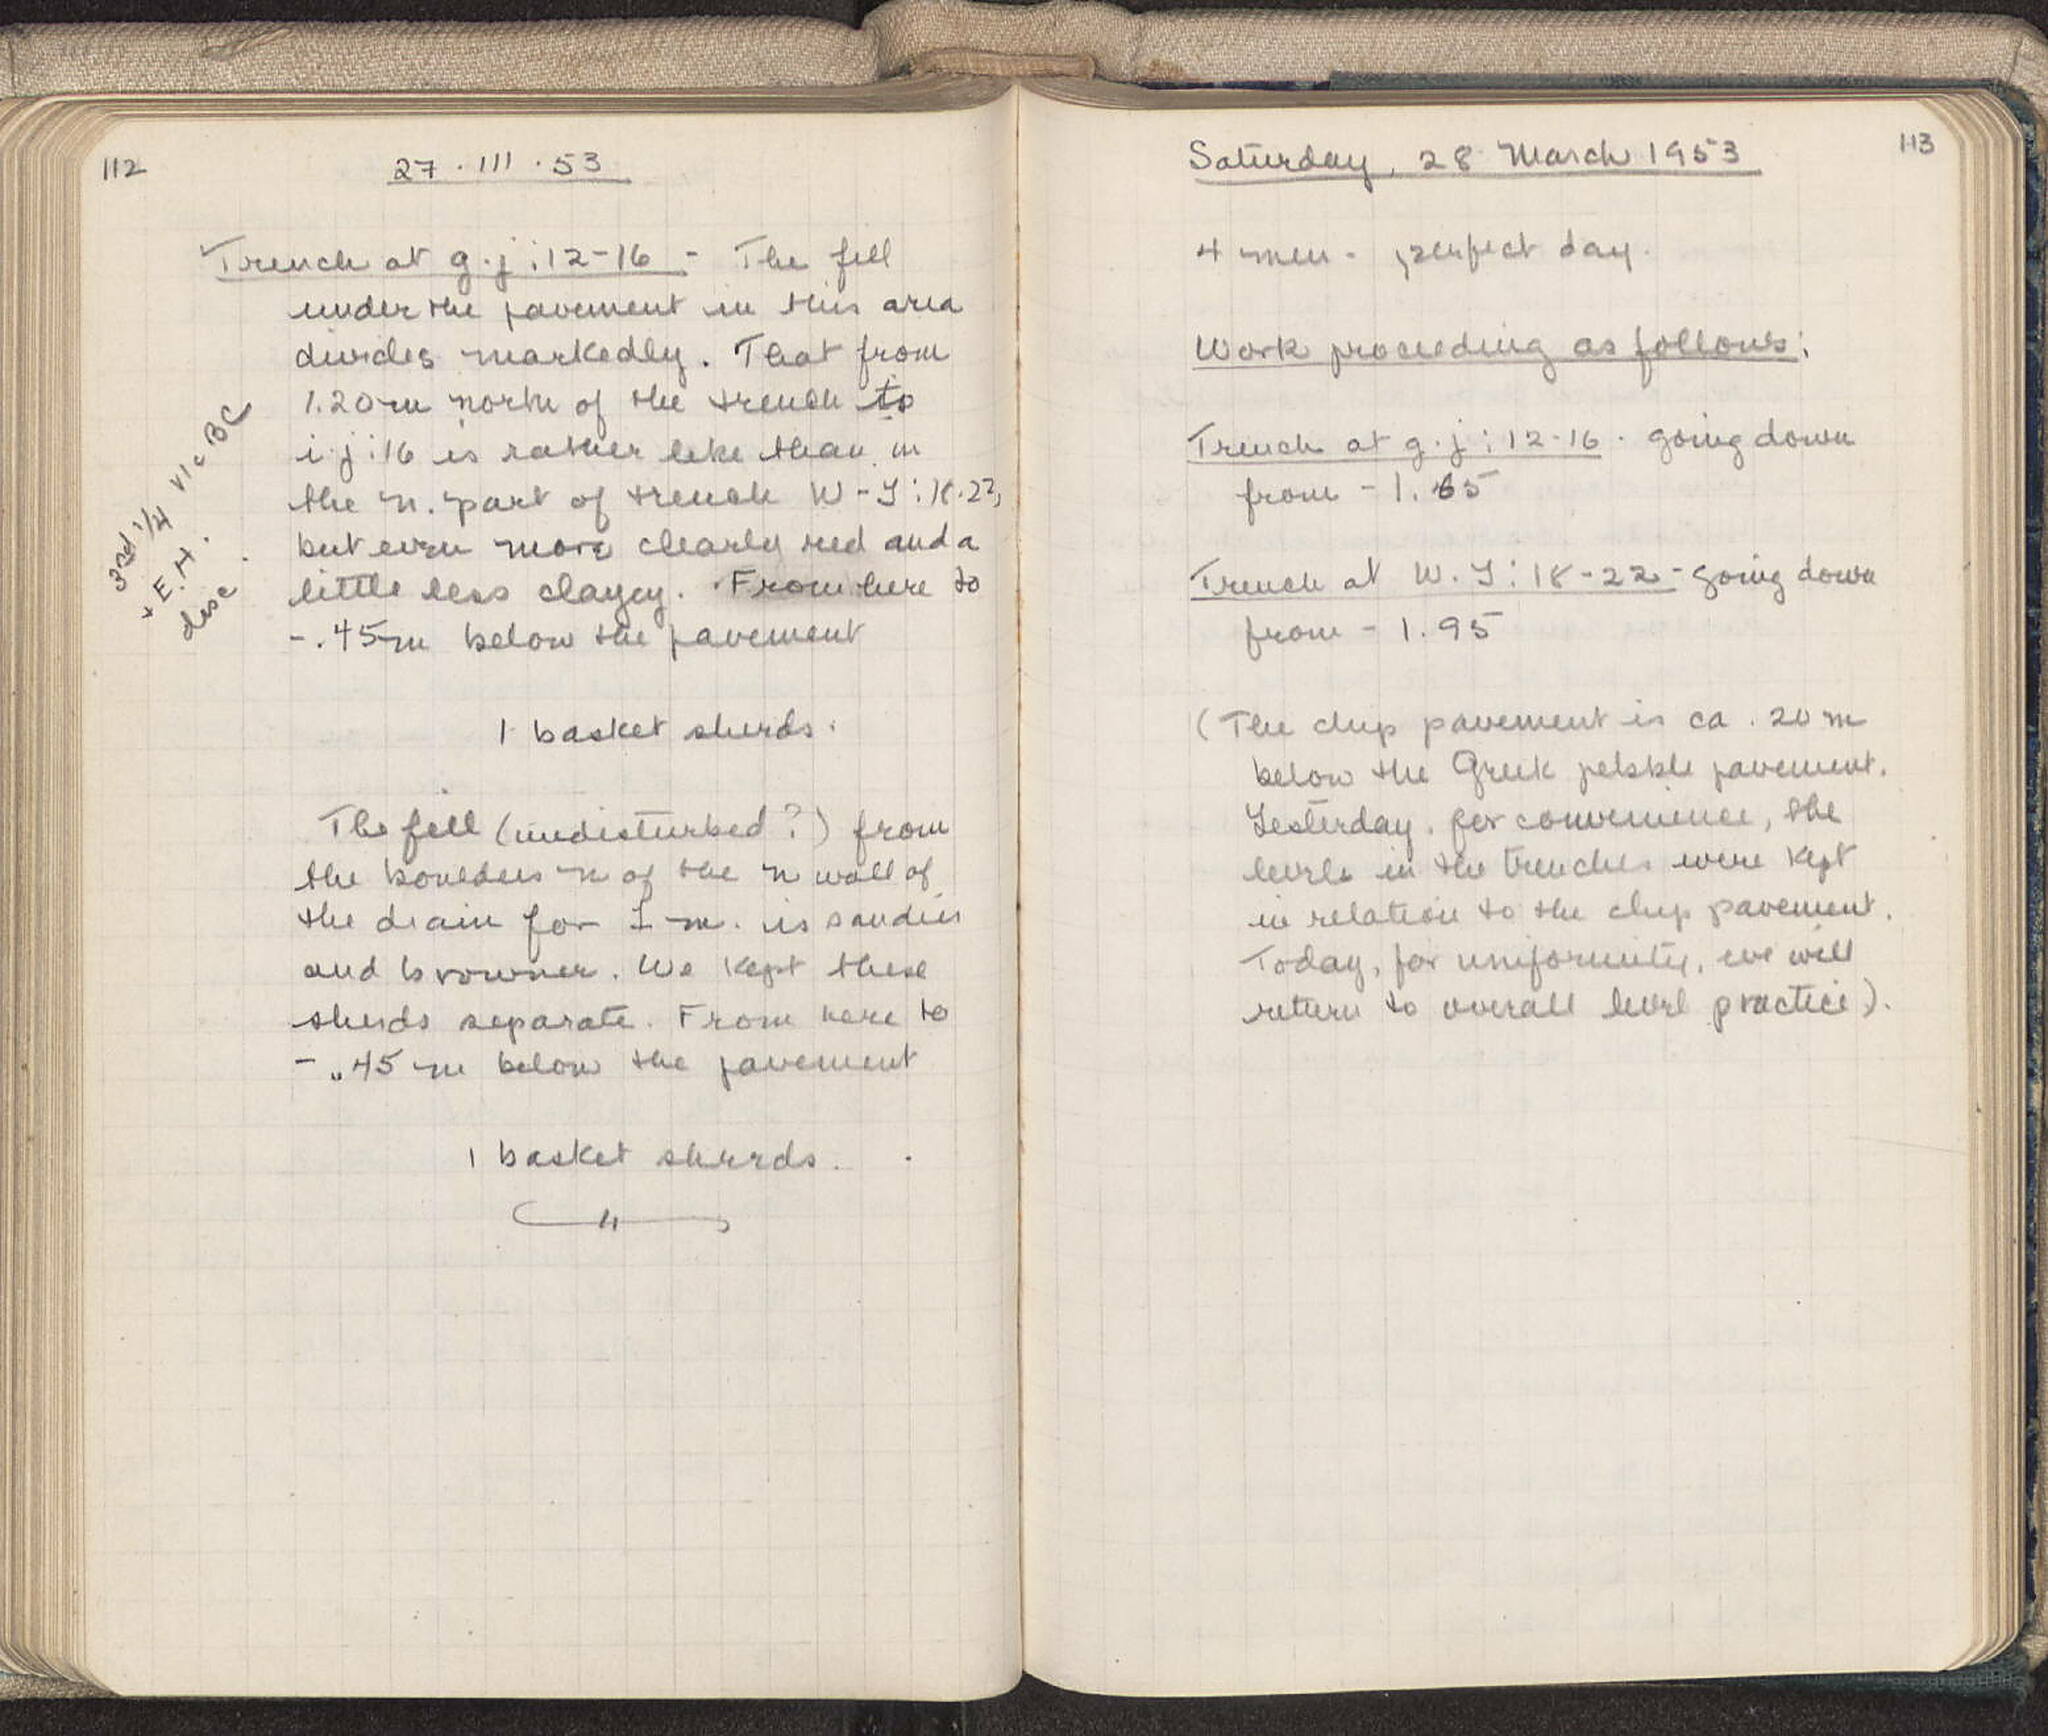 112
27 . III . 53
Trench at g.j : 12-16 - The fill
under the pavement in this area
divides markedly. That from
1.20m north of the trench to
i.j:16 is rather like than in
the n. part of trench W-Y: 18.22,
but even more clearly red and a
little less clayey. From here to
-.45m below the pavement
3rd 1/4 VI c BC
+ E.H.
disc.
1 basket sherds.
The fill (undisturbed?) from
the boulders N of the N wall of
the drain for 1 m. is sandier
and browner. We kept these
sherds separate. From here to
-.45 m below the pavement
1 basket sherds.
113
Saturday, 28 March 1953
4 men - perfect day.
Work proceeding as follows:
Trench at g.j : 12-16 . going down
from - 1.65
Trench at W.Y: 18-22 - going down
from - 1.95
(The chip pavement is ca .20m
below the Greek pebble pavement.
Yesterday, for convenience, the
levels in the trenches were kept
in relation to the chip pavement.
Today, for uniformity, we will
return to overall level practice).